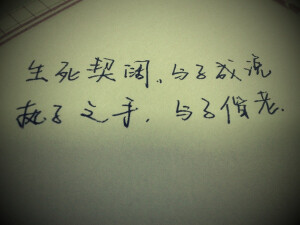 生死契阔、与子成流
执子之手，与子偕老.